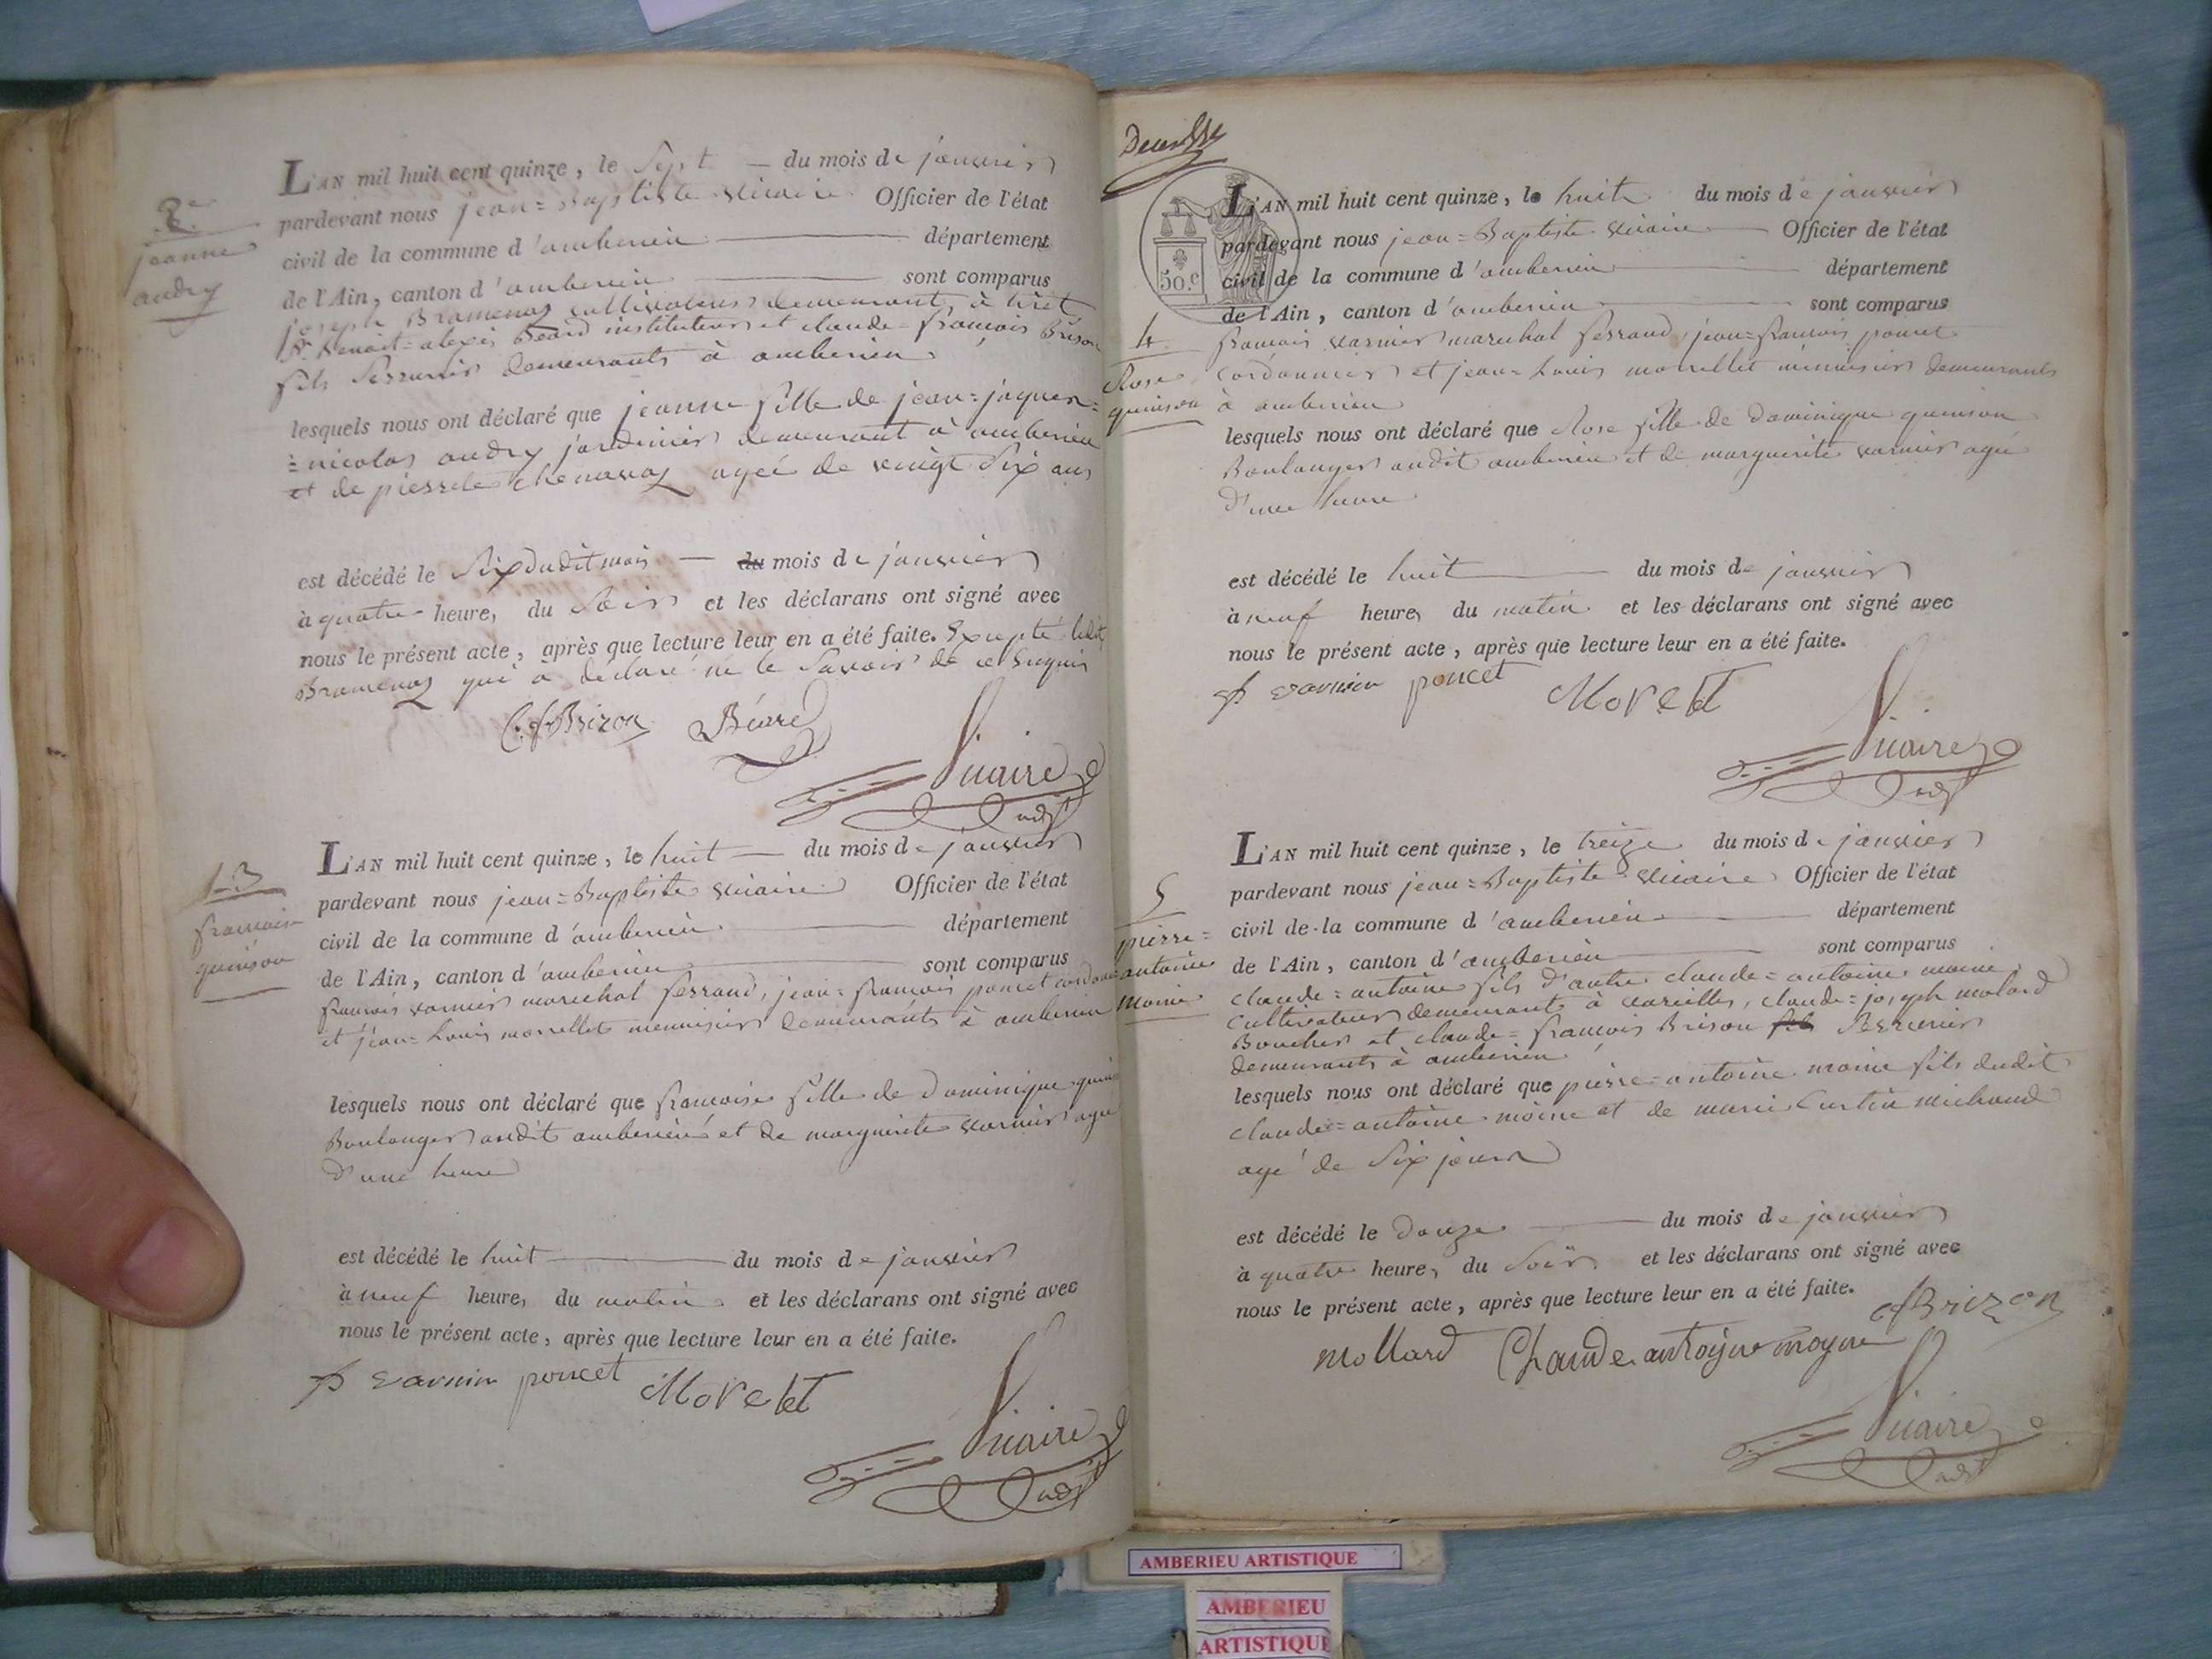 2e
jeanne
audry
L'AN mil huit cent quinze, le Sept — du mois de janvier
pardevant nous jean=Baptiste vicaire Officier de l'état
civil de la commune d'amberieu département
de l'Ain, canton d'amberieu sont comparus
joseph Bramenaz cultivateur demeurant à tiret
Sr. Benoit=alexis Béard instituteur et claude=francois Brison
fils Serrurier demeurants à amberieu
lesquels nous ont déclaré que jeanne fille de jean=jaques=
=nicolas audry jardinier demeurant à amberieu
et de pierrete chenavaz agée de vingt Six ans
est décédé le Six dudit mois — du mois de janvier
à quatre heure, du Soir et les déclarans ont signé avec
nous le présent acte, après que lecture leur en a été faite. Excepté ledit
Bramenaz qui a déclaré ne le Savoir de ce Enquis
C. f Brizon Béard
Vicaire
adjt
3
francoise
quinson
L'AN mil huit cent quinze, le huit — du mois de janvier
pardevant nous jean=Baptiste vicaire Officier de l'état
civil de la commune d'amberieu département
de l'Ain, canton d'amberieu sont comparus
francois varnier marechal ferrand, jean=francois poncet
et jean=Louis morrellet menuisier demeurants à amberieu
lesquels nous ont déclaré que francoise fille de dominique
Boulanger audit amberieu et de marguerite varnier agée
d'une heure
est décédé le huit du mois de janvier
à neuf heure, du matin et les déclarans ont signé avec
nous le présent acte, après que lecture leur en a été faite.
varnier poncet Morelet
Vicaire
adjt
50.c
4
Rose
quinson
L'AN mil huit cent quinze, le huit du mois de janvier
pardevant nous jean=Baptiste vicaire Officier de l'état
civil de la commune d'amberieu département
de l'Ain, canton d'amberieu sont comparus
francois varnier marechal ferrand, jean=francois poncet
cordonnier et jean=Louis morrellet menuisier demeurants
à amberieu
lesquels nous ont déclaré que Rose fille de dominique quinson
Boulanger audit amberieu et de marguerite varnier agée
d'une heure
est décédé le huit du mois de janvier
à neuf heure, du matin et les déclarans ont signé avec
nous le présent acte, après que lecture leur en a été faite.
varnier poncet Morelet
Vicaire
adjt
5
pierre=
antoine
moine
L'AN mil huit cent quinze, le treize du mois de janvier
pardevant nous jean=Baptiste vicaire Officier de l'état
civil de la commune d'amberieu département
de l'Ain, canton d'amberieu sont comparus
claude=antoine fils d'autre claude=antoine moine
cultivateur demeurant à vareilles, claude=joseph molard
Boucher et claude=francois Brison fils Serrurier
demeurants à amberieu
lesquels nous ont déclaré que pierre=antoine moine fils dudit
claude=antoine moine et de marie michaud
agé de Six jours
est décédé le douze du mois de janvier
à quatre heure, du Soir et les déclarans ont signé avec
nous le présent acte, après que lecture leur en a été faite.
cf Brizon
mollard Claude antoyne moyne
Vicaire
adjt
AMBERIEU ARTISTIQUE
AMBERIEU
ARTISTIQUE